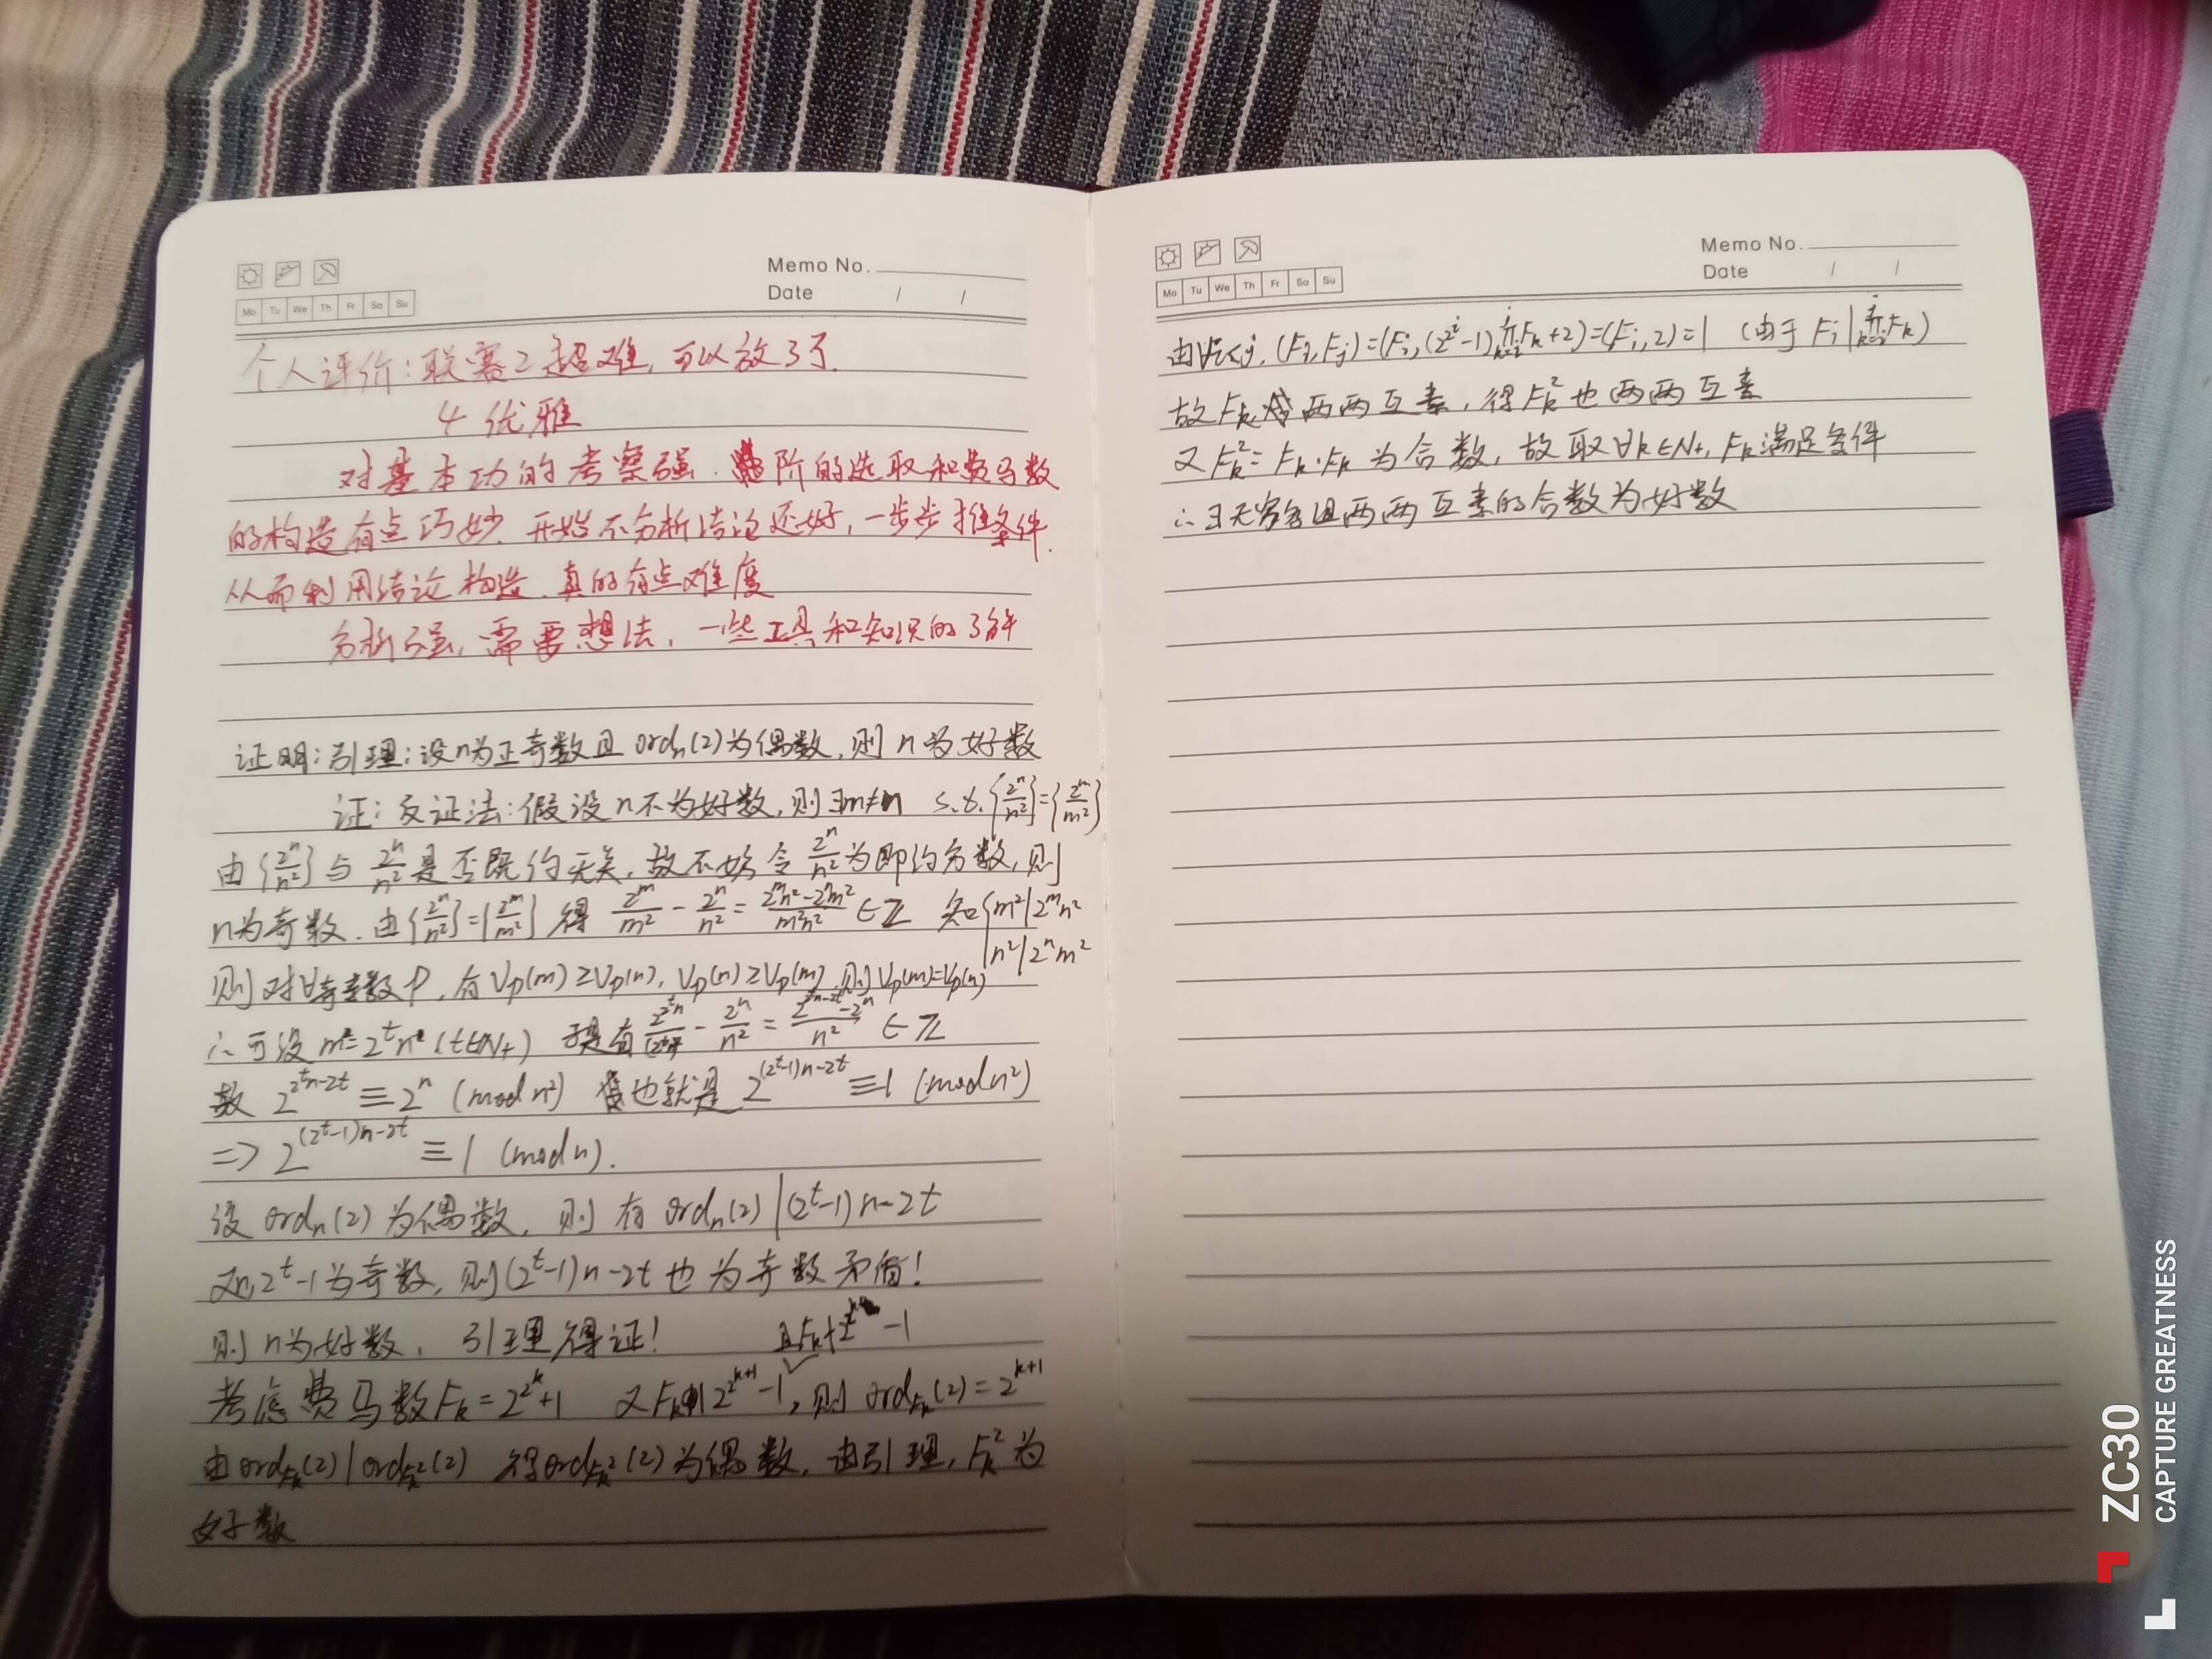 Memo No.
Date / /
Mo Tu We Th Fr Sa Su
个人评价:联赛2超难,可以放3了.
4 优雅
对基本功的考察强.阶的选取和费马数
的构造有点巧妙.开始不分析结论还好,一步步推条件.
从而利用结论构造.真的有点难度
分析强,需要想法,一些工具和知识的了解
证明:引理:设n为正奇数且ordₙ(2)为偶数,则n为好数
证:反证法:假设n不为好数,则∃m≠n s.t.{2^n/n²}={2^m/m²}
由{2^n/n²}与2^n/n²是否既约无关,故不妨令2^n/n²为即约分数,则
n为奇数.由{2^n/n²}={2^m/m²}得 2^m/m² - 2^n/n² = (2^m n² - 2^n m²)/(m²n²) ∈ Z 知{m²|2^m n²
n²|2^n m²
则对∀奇素数P,有Vp(m)≥Vp(n),Vp(n)≥Vp(m),则Vp(m)=Vp(n)
∴可设m=2^t n(t∈N+) 于是有 - 2^n/n² = (2^(2^t n-2t) - 2^n)/n² ∈ Z
故 2^(2^t n-2t) ≡ 2^n (mod n²) 也就是 2^((2^t-1)n-2t) ≡ 1 (mod n²)
=> 2^((2^t-1)n-2t) ≡ 1 (mod n).
设ordₙ(2)为偶数,则有ordₙ(2)|(2^t-1)n-2t
又n,2^t-1为奇数,则(2^t-1)n-2t也为奇数矛盾!
则n为好数,引理得证!
且F_k∤2^(2^k)-1
考虑费马数F_k=2^(2^k)+1 又F_k|2^(2^(k+1))-1,则ord_{F_k}(2)=2^(k+1)
由ord_{F_k}(2)|ord_{F_k²}(2) 得ord_{F_k²}(2)为偶数,由引理,F_k²为
好数
Memo No.
Date / /
Mo Tu We Th Fr Sa Su
由∀i<j,(F_i,F_j)=(F_i,(2^(2^i)-1)∏F_k+2)=(F_i,2)=1 (由于F_i|∏F_k)
故F_k两两互素,得F_k²也两两互素
又F_k²=F_k·F_k为合数,故取∀k∈N+,F_k满足条件
∴∃无穷多组两两互素的合数为好数
ZC30
CAPTURE GREATNESS